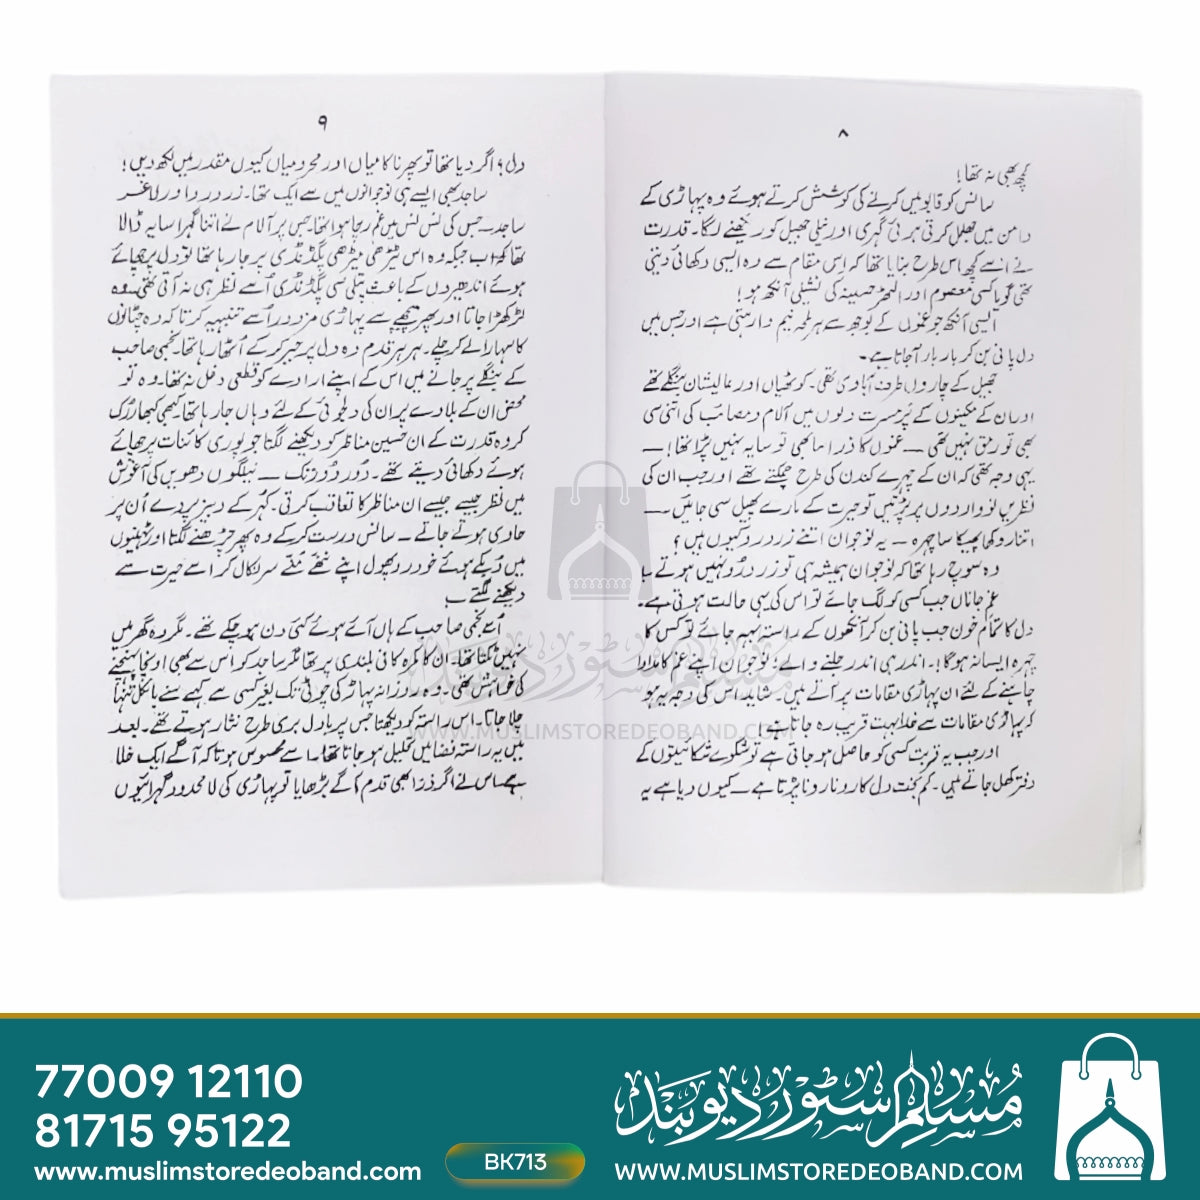 ۸
کچھ بھی نہ تھا!
سانس کو قابو میں کرنے کی کوشش کرتے ہوئے وہ پہاڑی کے
دامن میں جھل کرتی ہوئی گہری اور نیلی جھیل کو دیکھنے لگا۔ قدرت
نے اسے کچھ اس طرح بنایا تھا کہ اس مقام سے وہ ایسی دکھائی دیتی
تھی گویا کسی معصوم اور الھڑ حسینہ کی نشیلی آنکھ ہو!
ایسی آنکھ جو غموں کے بوجھ سے ہر لمحہ نیم وا رہتی ہے اور جس میں
دل پانی بن کر بار بار آجاتا ہے۔
جھیل کے چاروں طرف آبادی تھی۔ کوٹھیاں اور عالیشان بنگلے تھے
اور ان کے مکینوں کے پُرمسرت دلوں میں آلام و مصائب کی اتنی سی
بھی تو رمق نہیں تھی — غموں کا ذرا سا بھی تو سایہ نہیں پڑا تھا! —
یہی وجہ تھی کہ ان کے چہرے کندن کی طرح چمکتے تھے اور جب ان کی
نظریں نو واردوں پر پڑتیں تو حیرت کے مارے پھیل سی جاتیں۔ —
اتنا روکھا پھیکا سا چہرہ — یہ نوجوان اتنے زرد رو کیوں ہیں؟
وہ سوچ رہا تھا کہ نوجوان ہمیشہ ہی تو زرد رُو نہیں ہوتے
غمِ جاناں جب کسی کو لگ جائے تو اس کی یہی حالت ہوتی ہے۔
دل کا تمام خون جب پانی بن کر آنکھوں کے راستہ بہہ جائے تو کس کا
چہرہ ایسا نہ ہوگا!۔ اندر ہی اندر جلنے والے؛ نوجوان اپنے غم کا مداوا
چاہنے کے لئے ان پہاڑی مقامات پر آتے ہیں۔ شاید اس کی وجہ یہ ہو
کہ پہاڑی مقامات سے خدا بہت قریب رہ جاتا ہے۔
اور جب یہ قربت کسی کو حاصل ہو جاتی ہے تو شکوے شکائیتوں کے
دفتر کھل جاتے ہیں۔ کم بخت دل کا رونا رونا پڑتا ہے — کیوں دیا ہے یہ
۹
دل؟ اگر دیا تھا تو پھر ناکامیاں اور محرومیاں کیوں مقدر میں لکھ دیں!
ساجد بھی ایسے ہی نوجوانوں میں سے ایک تھا۔ زرد رو اور لاغر
ساجد — جس کی نس نس میں غم رچا ہوا تھا۔ جس پر آلام نے اتنا گہرا سایہ ڈالا
تھا کہ اب جبکہ وہ اس ٹیڑھی میڑھی پگڈنڈی پر جا رہا تھا تو دل پر چھائے
ہوئے اندھیروں کے باعث پتلی سی پگڈنڈی اُسے نظر ہی نہ آتی تھی۔ وہ
لڑکھڑا جاتا اور پھر پیچھے سے پہاڑی مزدور اُسے تنبیہہ کرتا کہ وہ چٹانوں
کا سہارا لے کر چلے۔ ہر ہر قدم وہ دل پر جبر کر کے اُٹھا رہا تھا۔ نجمی صاحب
کے بنگلے پر جانے میں اس کے اپنے ارادے کو قطعی دخل نہ تھا۔ وہ تو
محض ان کے بلاوے پر ان کی دلجوئی کے لئے وہاں جا رہا تھا کبھی کبھار رُک
کر وہ قدرت کے ان حسین مناظر کو دیکھنے لگتا جو پوری کائنات پر چھائے
ہوئے دکھائی دیتے تھے۔ دُور دُور تک — نیلگوں دھویں کی آغوش
میں نظر جیسے جیسے ان مناظر کا تعاقب کرتی۔ کُہر کے دبیز پردے اُن پر
حاوی ہوتے جاتے — سانس درست کر کے وہ پھر چڑھنے لگتا اور ٹہنیوں
میں دُبکے ہوئے خودرو پھول اپنے ننھے منّے سر نکال کر اسے حیرت سے
دیکھنے لگتے۔
اُسے نجمی صاحب کے ہاں آئے ہوئے کئی دن ہو چکے تھے۔ مگر وہ گھر میں
نہیں ٹکتا تھا۔ ان کا کمرہ کافی بلندی پر تھا مگر ساجد کو اس سے بھی اونچا پہنچنے
کی خواہش تھی۔ وہ روزانہ پہاڑ کی چوٹی تک بغیر کسی سے کہے سنے بالکل تنہا
چلا جاتا۔ اس راستہ کو دیکھتا جس پر بادل بری طرح نثار ہوتے تھے۔ بعد
میں یہ راستہ فضا میں تحلیل ہو جاتا تھا۔ اسے محسوس ہوتا کہ آگے ایک خلا
ہے اس نے اگر ذرا بھی قدم آگے بڑھایا تو پہاڑی کی لامحدود گہرائیوں
مسلم سٹور دیوبند
WWW.MUSLIMSTOREDEOBAND.COM
77009 12110
81715 95122
www.muslimstoredeoband.com
BK713
مسلم سٹور دیوبند
WWW.MUSLIMSTOREDEOBAND.COM